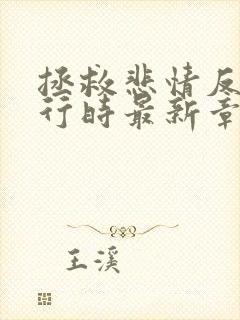 拯救悲情反
行时最新章
王溪